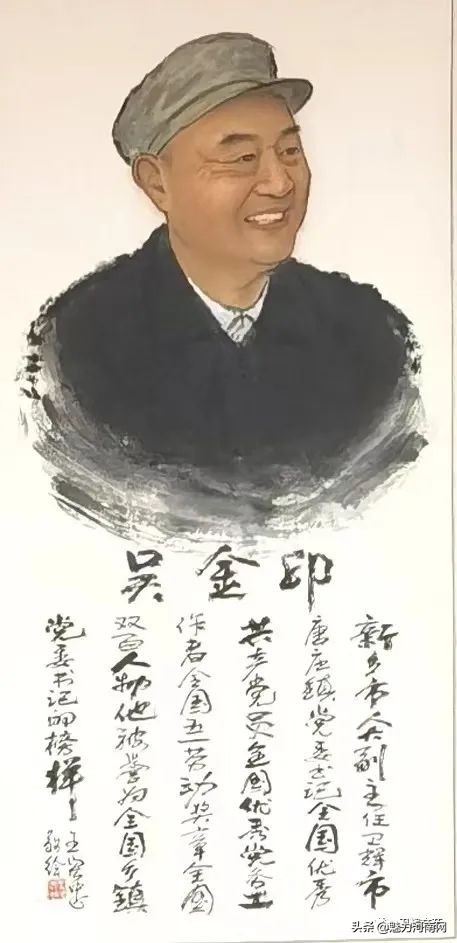 吴金印
新乡市人大副主任卫辉市
唐庄镇党委书记全国优秀
共产党员全国优秀党务工
作者全国五一劳动奖章全国
双百人物他被誉为全国乡镇
党委书记的榜样
敬绘
头条@魅力河南网